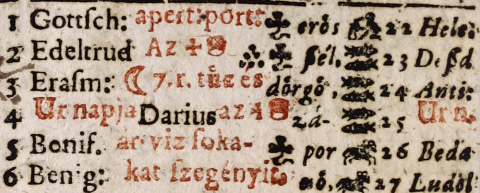 1 Gottsch: apert: port: erős 22 Hele:
2 Edeltrud Az szél, 23 Desid
3 Erasm: ☾ 7. r. tüz es dörgö, 24 Anti:
4 Ur napja Darius az zá- 25 Ur na
5 Bonif. ár viz soka- por 26 Beda
6 Benig: kat szegényit, 27 Ludol: